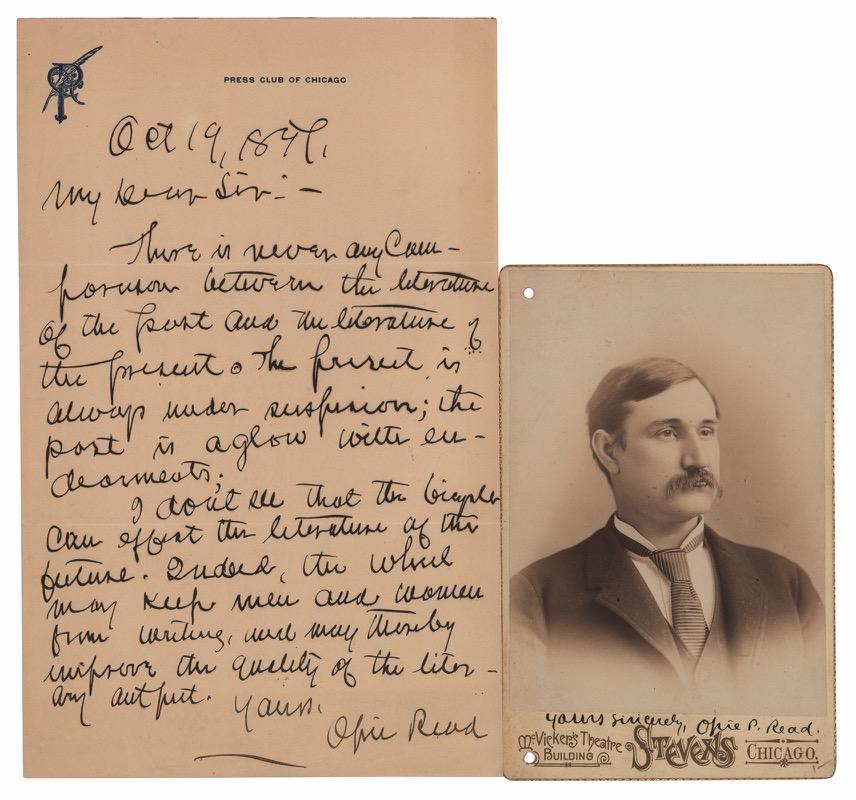 PRESS CLUB OF CHICAGO
Oct 19, 1897.
My Dear Sir:—
There is never any Com-
parison between the literature
of the past and the literature of
the present. The present is
always under suspicion; the
past is aglow with en-
dearments;
I don't see that the bicycle
can effect the literature of the
future. Indeed, the wheel
may keep men and women
from writing, and may thereby
improve the quality of the liter-
ary output.
Yours,
Opie Read
Yours sincerely, Opie P. Read.
McVicker's Theatre
Building
Stevens
Chicago.